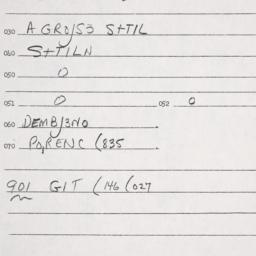 030 A GRO/S3 S+TIL
040 S+TILN
050 0
051 0 052 0
060 DEMB/3NO .
070 PA,RENC (835 .
901 GIT (146 (027